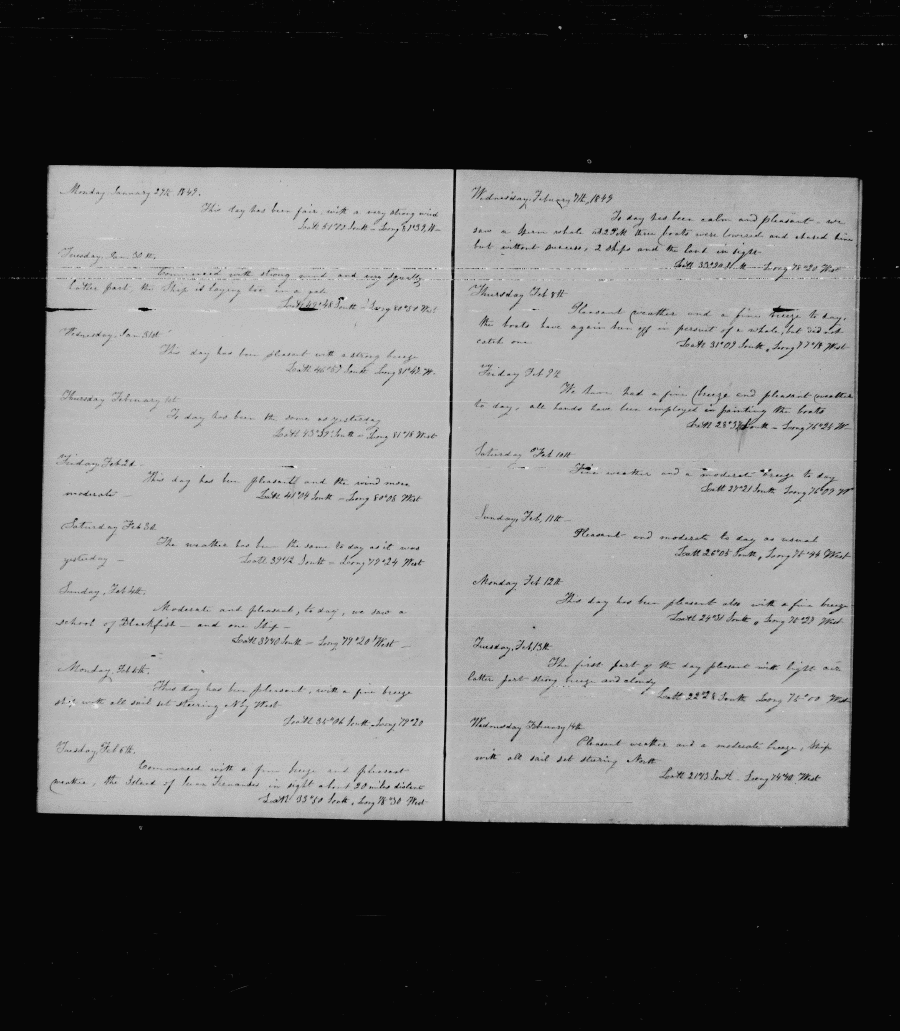 Monday January 29th, 1849.
This day has been fair with a very strong wind
South - Long 81°39 W-
Tuesday, Jan 30th.
Commenced with strong wind and very squally
latter part, the Ship is laying too in a gale
Latt 49°48 South - Long 80°50 West
Wednesday, Jan 31st
This day has been pleasant with a strong breeze
Latt 46°57 South - Long 81°42 W-
Thursday February 1st
To day has been the same as yesterday
Latt 43°39 South - Long 81°18 West
Friday, Feb 2d -
This day has been pleasant and the wind more
moderate - Latt 41°04 South - Long 80°08 West
Saturday Feb 3d
The weather has been the same to day as it was
yesterday - Latt 39°12 South - Long 79°24 West
Sunday, Feb 4th,
Moderate and pleasant, to day, we saw a
school of Blackfish - and one Ship -
Latt 37°40 South - Long 79°20 West -
Monday, Feb 5th,
This day has been pleasant, with a fine breeze
ship with all sail set steering N by West
Latt 35°06 South, Long 79°20
Tuesday Feb 6th,
Commenced with a fine breeze and pleasant
weather, the Island of Juan Fernandes in sight about 20 miles distant
Latt 33°50 South, Long 78°30 West
Wednesday, February 7th, 1849
To day has been calm and pleasant - we
saw a sperm whale at 2 P.M three boats were lowered and chased him
but without success, 2 ships and the land in sight
Latt 33°30 South - Long 78°20 West
Thursday Feb 8th
Pleasant weather and a fine breeze to day.
the boats have again been off in persuit of a whale, but did not
catch one Latt 31°09 South, Long 77°18 West
Friday Feb 9th
We have had a fine breeze and pleasant weather
to day. all hands have been employed in painting the boats
South - Long 76°24 W-
Saturday Feb 10th
Fine weather and a moderate breeze to day
Latt 27°21 South Long 76°09 W
Sunday, Feb, 11th -
Pleasant and moderate to day as usual
Latt 26°05 South, Long 76°44 West
Monday Feb 12th
This day has been pleasant also with a fine breeze
Latt 24°31 South, Long 76°29 West
Tuesday, Feb 13th
The first part of the day pleasant with light air
latter part strong breeze and cloudy
Latt 22°28 South Long 76°00 West
Wednesday February 14th
Pleasant weather and a moderate breeze, Ship
with all sail set steering North
Latt 21°13 South - Long 74°40 West